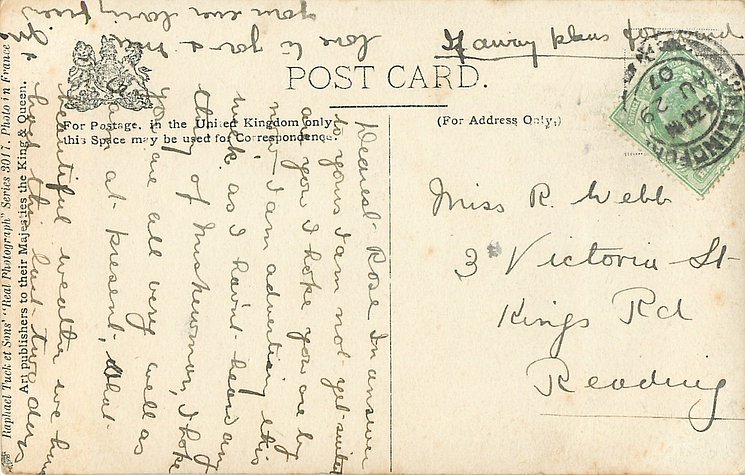 POST CARD.
For Postage, in the United Kingdom only
this Space may be used for Correspondence.
(For Address Only.)
If away please forward
WALLINGFORD
8.30 AM
29
07
Miss R. Webb
3 Victoria St
Kings Rd
Reading
Dearest Rose In answer
to yours I am not yet suited
are you I hope you are by
now I am advertising this
week as I havnt heard any
thing of I hope
you are all very well as
I am at present, What
beautiful weather we have
had this last two days
love to you &
your ever loving friend
Raphael Tuck et Sons' "Real Photograph" Series 3017. Photo in France
Art publishers to their Majesties the King & Queen.